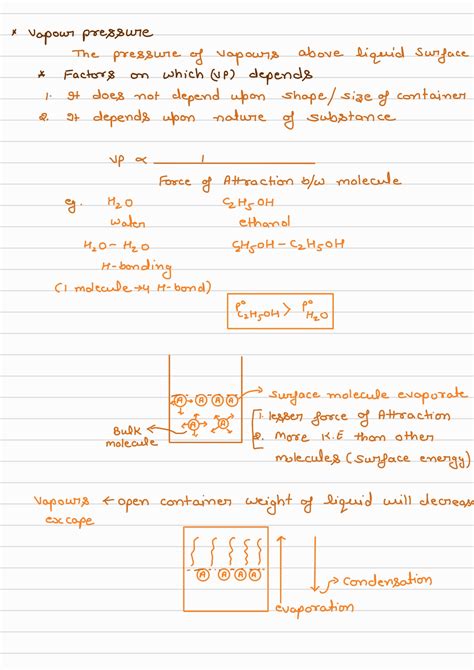 * Vapour pressure
The pressure of vapours above liquid surface
* Factors on which (VP) depends
1. It does not depend upon shape/size of container
2. It depends upon nature of substance
VP ∝ 1
Force of Attraction b/w molecule
eg. H2O C2H5OH
water ethanol
H2O - H2O C2H5OH - C2H5OH
H-bonding
(1 molecule → 4 H-bond)
P°C2H5OH > P°H2O
A A A A
surface molecule evaporate
1. lesser force of Attraction
A A
Bulk molecule
2. More K.E than other
molecules (surface energy)
Vapours ← open container weight of liquid will decrease
excape
A A A A
condensation
evaporation